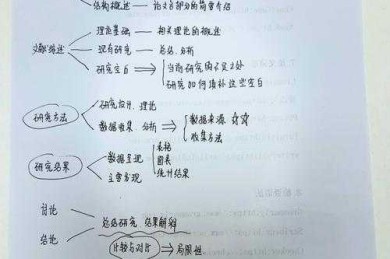 结构概述 — 论文各部分的简单介绍
理论基础 — 相关理论的概述
文献综述 现有研究 — 总结、分析
研究空白 当前研究的不足之处
研究如何填补这些空白
研究方法 研究设计、理论
数据收集、分析 数据来源
收集方法
研究结果 数据呈现 表格
图表
主要发现 统计结果
讨论
总结研究结果解释
结论
比较与对比 局限性